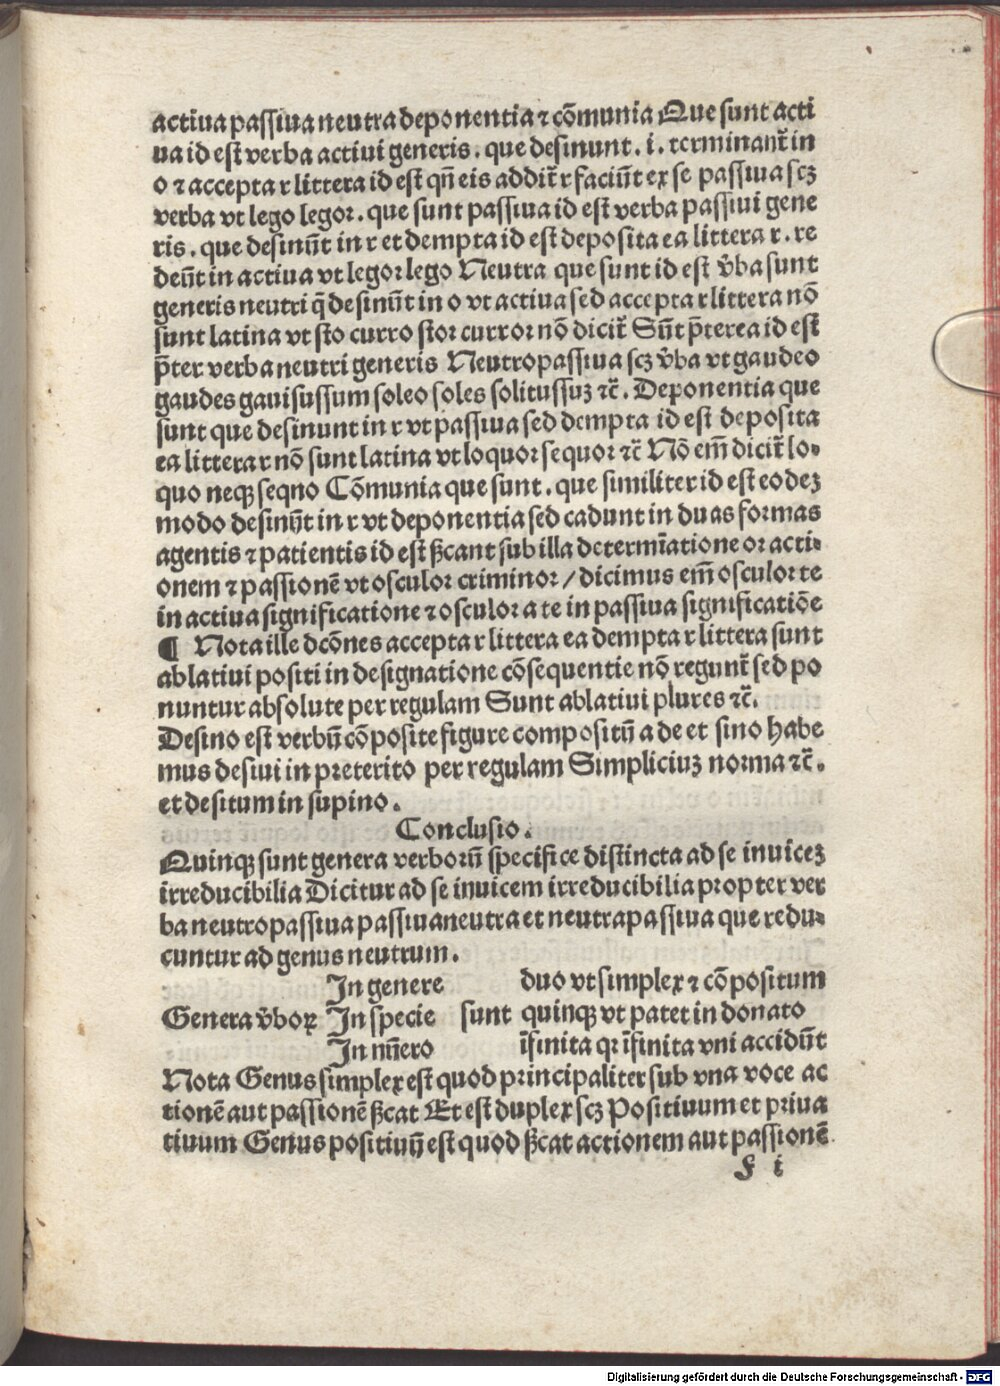 actiua passiua neutra deponentia ⁊ cōmunia Que sunt acti
ua id est verba actiui generis. que desinunt. i. terminant̄ in
o ⁊ accepta r littera id est qn̄ eis addit̄ r faciūt ex se passiua scꝫ
verba vt lego legor. que sunt passiua id est verba passiui gene
ris. que desinūt in r et dempta id est deposita ea littera r. re
deūt in actiua vt legor lego Neutra que sunt id est v̄ba sunt
generis neutri q̄ desinūt in o vt actiua sed accepta r littera nō
sunt latina vt sto curro stor curror nō dicit̄ Sūt p̄terea id est
p̄ter verba neutri generis Neutropassiua scꝫ v̄ba vt gaudeo
gaudes gauisus sum soleo soles solitus suꝫ ⁊c̄. Deponentia que
sunt que desinunt in r vt passiua sed dempta id est deposita
ea littera r nō sunt latina vt loquor sequor ⁊c̄ Nō em̄ dicit̄ lo-
quo neqꝫ seqno Cōmunia que sunt. que similiter id est eodeꝫ
modo desinūt in r vt deponentia sed cadunt in duas formas
agentis ⁊ patientis id est ßcant sub illa determīatione or acti-
onem ⁊ passionē vt osculor criminor / dicimus em̄ osculor te
in actiua significatione ⁊ osculor a te in passiua significatiōe
¶ Nota ille dcōnes accepta r littera ea dempta r littera sunt
ablatiui positi in designatione cōsequentie nō regunt̄ sed po
nuntur absolute per regulam Sunt ablatiui plures ⁊c̄.
Desino est verbū cōposite figure compositū a de et sino habe
mus desiui in preterito per regulam Simpliciuꝫ norma ⁊c̄.
et desitum in supino.
Conclusio.
Quinqꝫ sunt genera verborū specifice distincta ad se inuiceꝫ
irreducibilia Dicitur ad se inuicem irreducibilia propter ver
ba neutropassiua passiuaneutra et neutrapassiua que redu-
cuntur ad genus neutrum.
In genere duo vt simplex ⁊ cōpositum
Genera v̄boꝝ In specie sunt quinqꝫ vt patet in donato
In nūero īfinita qꝛ īfinita vni accidūt
Nota Genus simplex est quod principaliter sub vna voce ac
tionē aut passionē ßcat Et est duplex scꝫ Positiuum et priua
tiuum Genus positiuū est quod ßcat actionem aut passionē
f i
Digitalisierung gefördert durch die Deutsche Forschungsgemeinschaft - DFG